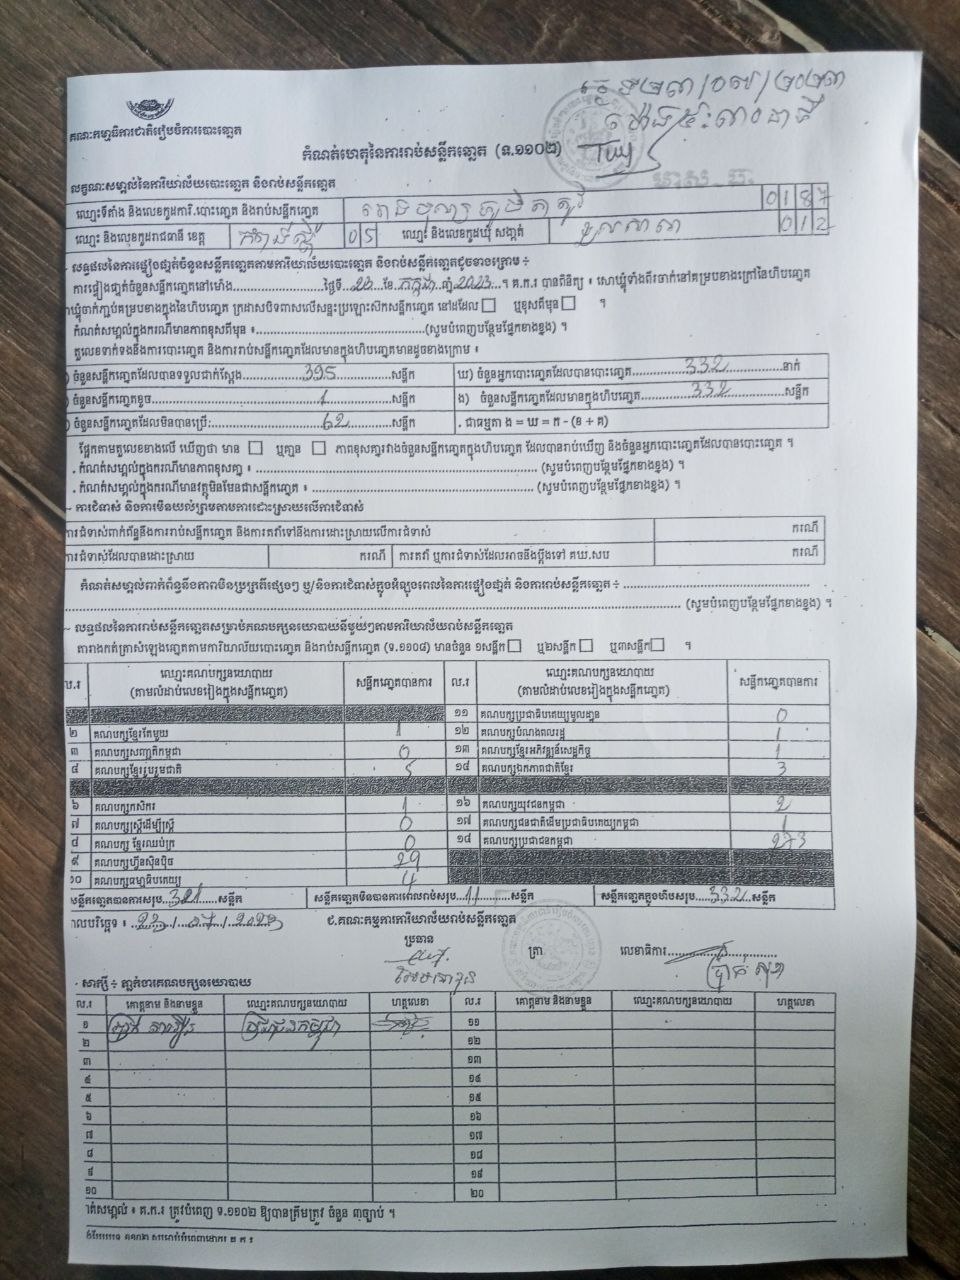 គណៈកម្មាធិការជាតិរៀបចំការបោះឆ្នោត
កំណត់ហេតុនៃការរាប់សន្លឹកឆ្នោត (ទ.១១០២)
លក្ខណៈសម្គាល់នៃការិយាល័យបោះឆ្នោត និងរាប់សន្លឹកឆ្នោត
ឈ្មោះទីតាំង និងលេខកូដការិ.បោះឆ្នោត និងរាប់សន្លឹកឆ្នោត 0187
ឈ្មោះ និងលេខកូដរាជធានី ខេត្ត កំពង់ស្ពឺ 05 ឈ្មោះ និងលេខកូដឃុំ សង្កាត់ 012
លទ្ធផលនៃការផ្ទៀងផ្ទាត់ចំនួនសន្លឹកឆ្នោតតាមការិយាល័យបោះឆ្នោត និងរាប់សន្លឹកឆ្នោតដូចខាងក្រោម ៖
ការផ្ទៀងផ្ទាត់ចំនួនសន្លឹកឆ្នោតនៅម៉ោង..........ថ្ងៃទី 23 ខែ កក្កដា ឆ្នាំ 2023 ។ គ.ក.រ បានពិនិត្យ ៖ សោឃ្លុំទាំងពីរចាក់នៅគម្របខាងក្រៅនៃហិបឆ្នោត
ឃ្លុំចាក់ភ្ជាប់គម្របខាងក្នុងនៃហិបឆ្នោត ក្រដាសបិទពាសលើសន្ទះប្រឡោះសឹកសន្លឹកឆ្នោត នៅដដែល ឬខុសពីមុន ។
កំណត់សម្គាល់ក្នុងករណីមានភាពខុសពីមុន ៖..........(សូមបំពេញបន្ថែមផ្នែកខាងខ្នង) ។
តួលេខទាក់ទងនឹងការបោះឆ្នោត និងការរាប់សន្លឹកឆ្នោតដែលមានក្នុងហិបឆ្នោតមានដូចខាងក្រោម ៖
) ចំនួនសន្លឹកឆ្នោតដែលបានទទួលជាក់ស្តែង 395 សន្លឹក ឃ) ចំនួនអ្នកបោះឆ្នោតដែលបានបោះឆ្នោត 332 នាក់
) ចំនួនសន្លឹកឆ្នោតខូច 1 សន្លឹក ង) ចំនួនសន្លឹកឆ្នោតដែលមានក្នុងហិបឆ្នោត 332 សន្លឹក
) ចំនួនសន្លឹកឆ្នោតដែលមិនបានប្រើ: 62 សន្លឹក . ជាធម្មតា ង = ឃ = ក - (ខ + គ)
ផ្អែកតាមតួលេខខាងលើ ឃើញថា មាន ឬគ្មាន ភាពខុសគ្នារវាងចំនួនសន្លឹកឆ្នោតក្នុងហិបឆ្នោត ដែលបានរាប់ឃើញ និងចំនួនអ្នកបោះឆ្នោតដែលបានបោះឆ្នោត ។
. កំណត់សម្គាល់ក្នុងករណីមានភាពខុសគ្នា ៖ .......... (សូមបំពេញបន្ថែមផ្នែកខាងខ្នង) ។
. កំណត់សម្គាល់ក្នុងករណីមានវត្ថុមិនមែនជាសន្លឹកឆ្នោត ៖ .......... (សូមបំពេញបន្ថែមផ្នែកខាងខ្នង) ។
- ការជំទាស់ និងការមិនយល់ព្រមតាមការដោះស្រាយលើការជំទាស់
ការជំទាស់ពាក់ព័ន្ធនឹងការរាប់សន្លឹកឆ្នោត និងការតវ៉ាទៅនឹងការដោះស្រាយលើការជំទាស់ ករណី
ការជំទាស់ដែលបានដោះស្រាយ ករណី ការតវ៉ា ឬការជំទាស់ដែលអាចនឹងប្តឹងទៅ គឃ.សប ករណី
កំណត់សម្គាល់ពាក់ព័ន្ធនឹងភាពមិនប្រក្រតីផ្សេងៗ ឬ/និងការជំទាស់ក្នុងអំឡុងពេលនៃការផ្ទៀងផ្ទាត់ និងការរាប់សន្លឹកឆ្នោត ៖ ..........
.......... (សូមបំពេញបន្ថែមផ្នែកខាងខ្នង) ។
- លទ្ធផលនៃការរាប់សន្លឹកឆ្នោតសម្រាប់គណបក្សនយោបាយនីមួយៗតាមការិយាល័យរាប់សន្លឹកឆ្នោត
តារាងកត់ត្រាសំឡេងឆ្នោតតាមការិយាល័យបោះឆ្នោត និងរាប់សន្លឹកឆ្នោត (ទ.១១០៨) មានចំនួន ១សន្លឹក ឬ២សន្លឹក ឬ៣សន្លឹក ។
ល.រ ឈ្មោះគណបក្សនយោបាយ (តាមលំដាប់លេខរៀងក្នុងសន្លឹកឆ្នោត) សន្លឹកឆ្នោតបានការ ល.រ ឈ្មោះគណបក្សនយោបាយ (តាមលំដាប់លេខរៀងក្នុងសន្លឹកឆ្នោត) សន្លឹកឆ្នោតបានការ
១១ គណបក្សប្រជាធិបតេយ្យមូលដ្ឋាន 0
២ គណបក្សខ្មែរតែមួយ 1 ១២ គណបក្សបំណងពលរដ្ឋ 1
៣ គណបក្សសញ្ជាតិកម្ពុជា 0 ១៣ គណបក្សខ្មែរអភិវឌ្ឍន៍សេដ្ឋកិច្ច 1
៤ គណបក្សខ្មែររួបរួមជាតិ 5 ១៤ គណបក្សឯកភាពជាតិខ្មែរ 3
៦ គណបក្សកសិករ 1 ១៦ គណបក្សយុវជនកម្ពុជា 2
៧ គណបក្សស្ត្រីដើម្បីស្ត្រី 0 ១៧ គណបក្សជនជាតិដើមប្រជាធិបតេយ្យកម្ពុជា 1
៨ គណបក្ស ខ្មែរឈប់ក្រ 0 ១៨ គណបក្សប្រជាជនកម្ពុជា 273
៩ គណបក្សហ៊្វុនស៊ិនប៉ិច 29
១០ គណបក្សធម្មាធិបតេយ្យ 4
សន្លឹកឆ្នោតបានការសរុប 321 សន្លឹក សន្លឹកឆ្នោតមិនបានការពេលរាប់សរុប 11 សន្លឹក សន្លឹកឆ្នោតក្នុងហិបសរុប 332 សន្លឹក
កាលបរិច្ឆេទ ៖ 23/07/2023 ជ.គណៈកម្មការការិយាល័យរាប់សន្លឹកឆ្នោត
ប្រធាន ត្រា លេខាធិការ
សាក្សី ៖ ភ្នាក់ងារគណបក្សនយោបាយ
ល.រ គោត្តនាម និងនាមខ្លួន ឈ្មោះគណបក្សនយោបាយ ហត្ថលេខា ល.រ គោត្តនាម និងនាមខ្លួន ឈ្មោះគណបក្សនយោបាយ ហត្ថលេខា
១ ប្រជាជនកម្ពុជា ១១
២ ១២
៣ ១៣
៤ ១៤
៥ ១៥
៦ ១៦
៧ ១៧
៨ ១៨
៩ ១៩
១០ ២០
កំណត់សម្គាល់ ៖ គ.ក.រ ត្រូវបំពេញ ទ.១១០២ ឱ្យបានត្រឹមត្រូវ ចំនួន ៣ច្បាប់ ។